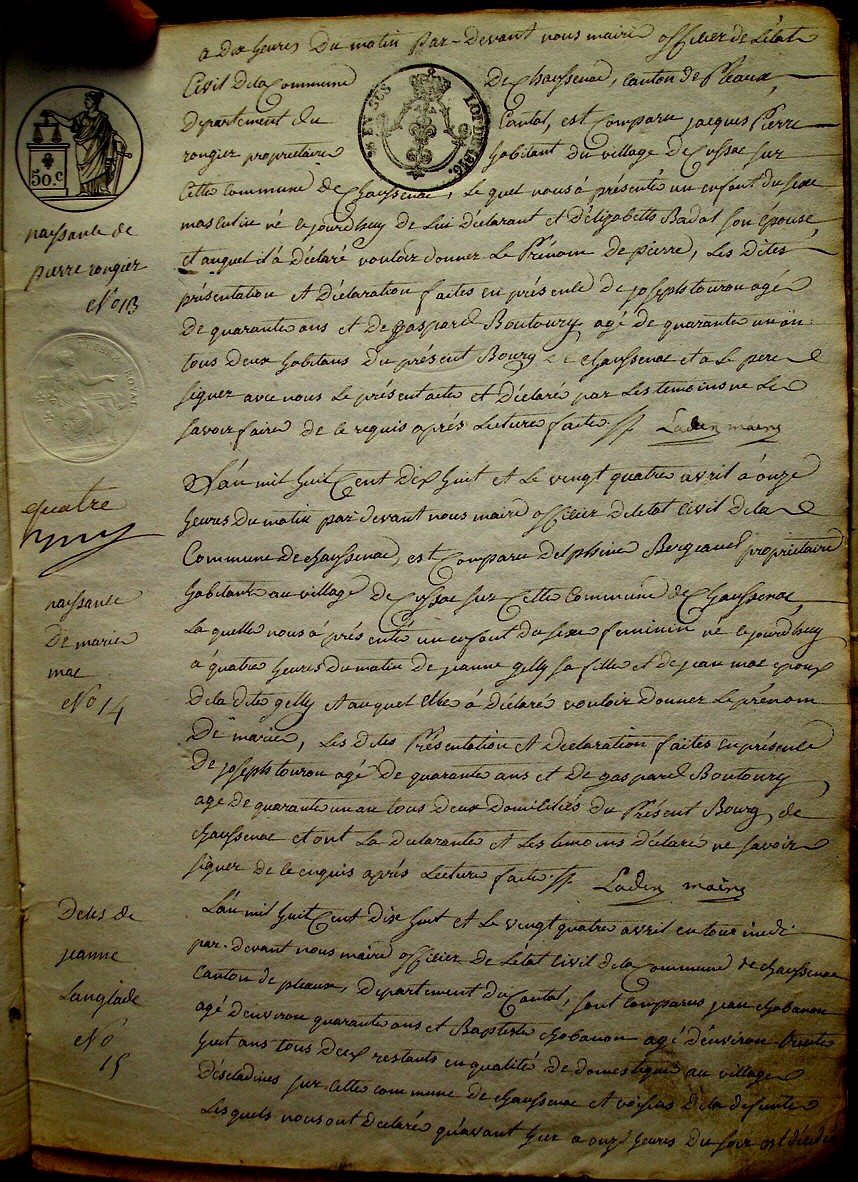 a dix heures Du matin Par-Devant nous maire officier de L'état
Civil de la Commune De Chaussenac, canton de Pleaux,
Departement du Cantal, est Comparu jacques Pierre
rongier proprietaire habitant du village De Cussac sur
Cette commune de Chaussenac, Le quel nous à présenté un enfant du sexe
masculin né ce jourdhuy de Lui Déclarant et d'Elizabette Badal son épouse,
et auquel il à Déclaré vouloir donner Le Prénom De pierre, Les Dites
présentation et Déclaration faites en présence De joseph touron agé
De quarante ans et de gaspard Boutoury agé de quarante un an
tous Deux habitans Du présent Bourg de chaussenac et a Le pere
signer avec nous Le présent acte et Déclaré par Les temoins ne Le
savoir faire de ce requis aprés Lecture faite
maire
50.c
EN SUS
TIMBRE ROYAL
naissance de
pierre rongier
N°13
quatre
L'an mil huit Cent Dix huit et Le vingt quatre avril à onze
heures Du matin par-devant nous maire officier de letat Civil de la
Commune De chaussenac, est Comparu Delphine Bergeaud propriétaire
habitante au village De Cussac sur Cette Commune de Chaussenac,
La quelle nous à présenté un enfant du sexe feminin né ce jourdhuy
à quatre heures Du matin de jeanne gilly sa fille et de jean mac epoux
De la dite gelly et auquel elle à Déclaré vouloir Donner Le prénom
De marie, Les Dites Présentation et Declaration faites en présence
De joseph touron agé De quarante ans et De gaspard Boutoury
agé de quarante un an tous Deux Domiciliés Du Présent Bourg de
chaussenac et ont La déclarante et Les temoins déclaré ne savoir
signer de ce enquis aprés Lecture faite
maire
naissance
De marie
mac
N° 14
L'an mil huit Cent Dix huit et Le vingt quatre avril
par-devant nous maire officier De L'état Civil de la Commune de chaussenac
Canton de pleaux, Departement du Cantal, sont Comparus jean chabanon
agé d'environ quarante ans et Baptiste chabanon agé d'environ trente
huit ans tous Deux restants en qualité de domestique au village
D'escladines sur Cette commune de chaussenac et voisins de la defunte
Les quels nous ont Declaré qu'avant hier a onze heures Du soir est décédée
Déces de
jeanne
Langlade
N°
15